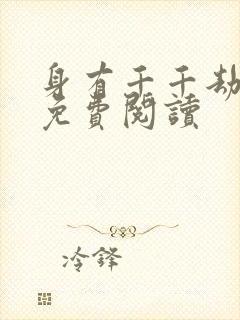 身有千千劫
免費閱讀
冷鋒